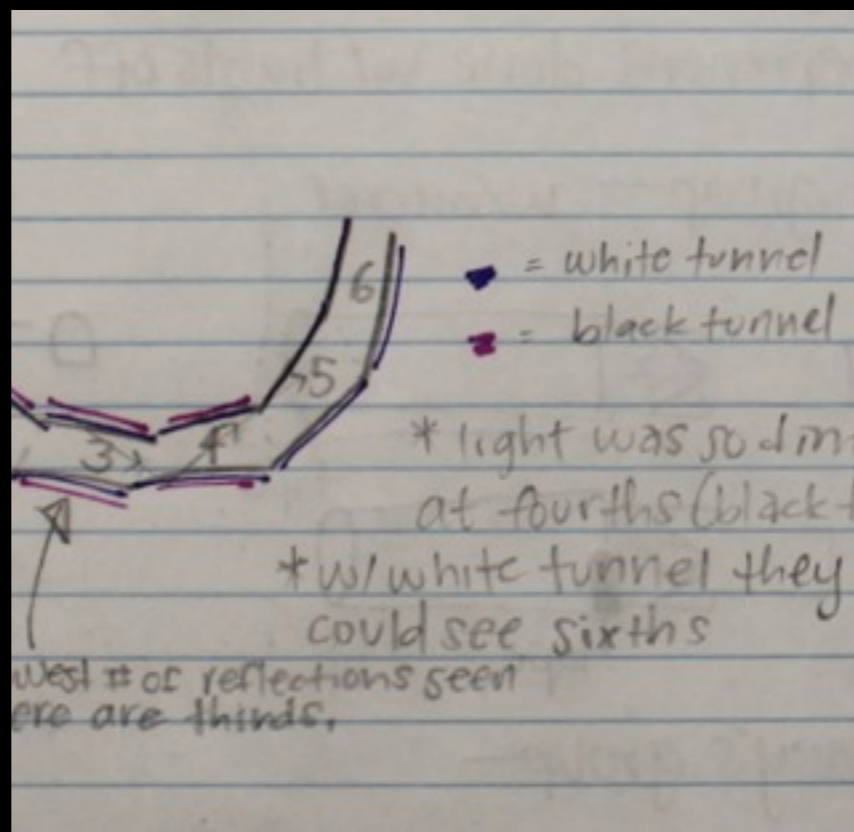 6
= white tunnel
5
= black tunnel
3 4
* light was so dim
at fourths (black t
* w/ white tunnel they
could see sixths
west # of reflections seen
ere are thirds.